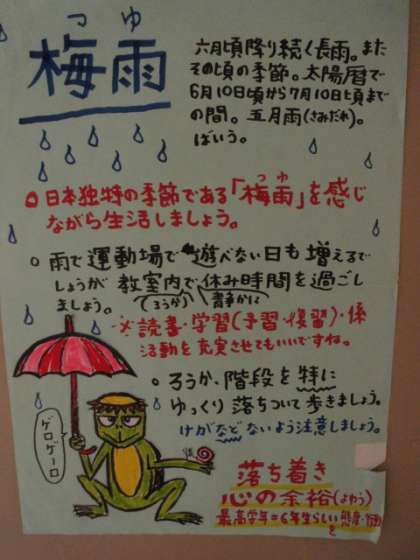 つゆ
梅雨
六月頃降り続く長雨。また
その頃の季節。太陽暦で
6月10日頃から7月10日頃まで
の間。五月雨(さみだれ)。
ばいう。
○日本独特の季節である「梅雨」を感じ
つゆ
ながら生活しましょう。
○雨で運動場で遊べない日も増えるで
しょうが教室内で休み時間を過ごし
ましょう。
(ろうか) 静かに
※読書・学習(予習・復習)・係
活動を充実させてもいいですね。
○ろうか、階段を特に
ゆっくり落ちついて歩きましょう。
けがなどないよう注意しましょう。
ゲロゲーロ
落ち着き
心の余裕(よゆう)
最高学年=6年生らしい態度・行動
を